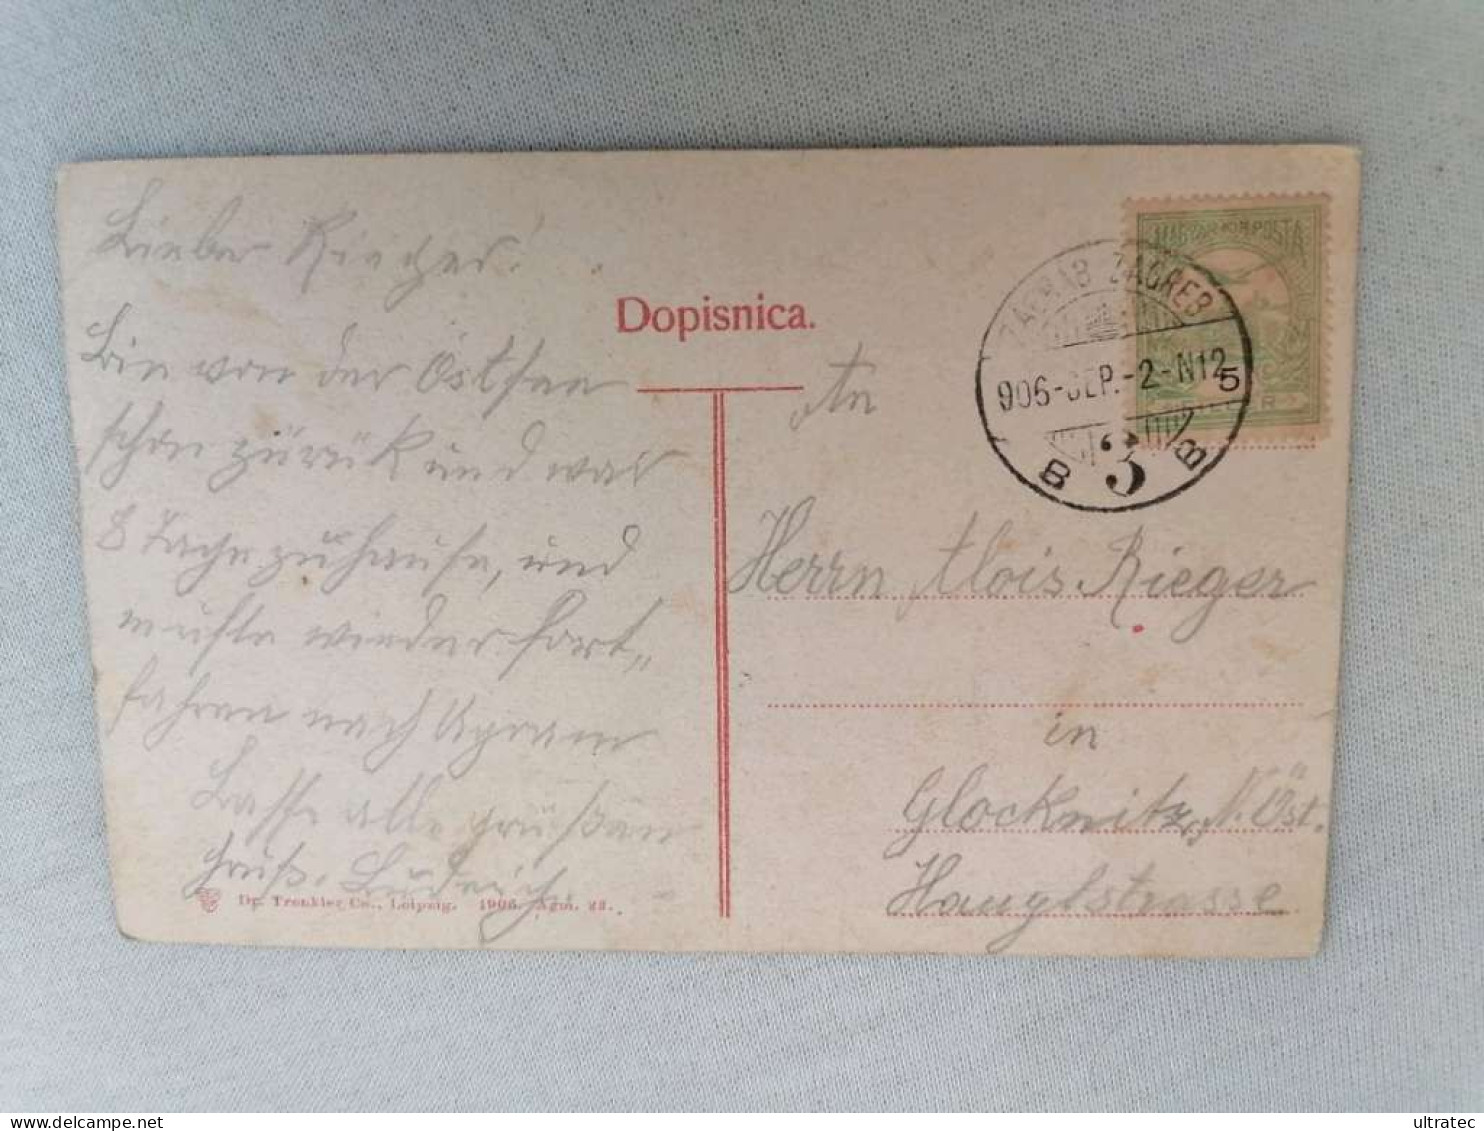 Lieber Rieger!
Bin von der Ostsee
schon zurück und war
8 Tage zuhause, und
mußte wieder fort„
fahren nach Agram
Lasse alle grüßen
Gruß.
Dr. Trenkler Co., Leipzig. 1906. Agm. 23.
Dopisnica.
An
MAGYAR KIR. POSTA
ZAGRAB ZAGREB
906-SEP.-2-N12
5
B 3 B
Herrn Alois Rieger
in
Glocknitz, N. Öst.
Hauptstrasse
ultratec